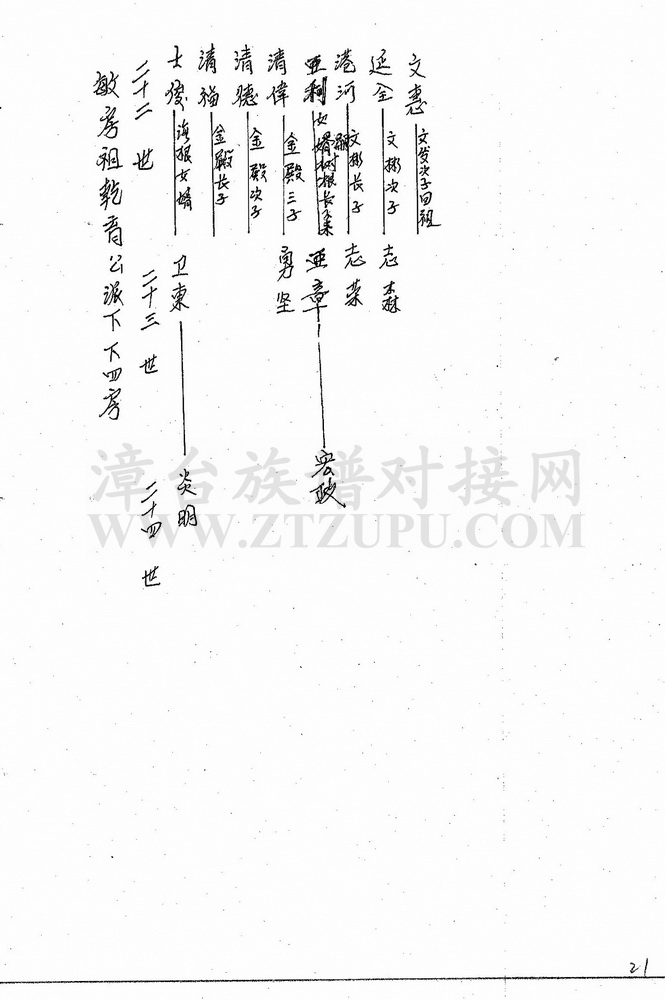 文惠 文发次子回祖
延全 文彬次子 志森
港河 文彬长子 志荣
亚利 女婿 树根长子 亚章 宏政
清偉 金殿三子 勇坚
清德 金殿次子
清福 金殿长子
士俊 海根女婿 卫東 炎明
二十二世 二十三世 二十四世
敏房祖乾斋公派下下四房
漳台族谱对接网
WWW.ZTZUPU.COM
21